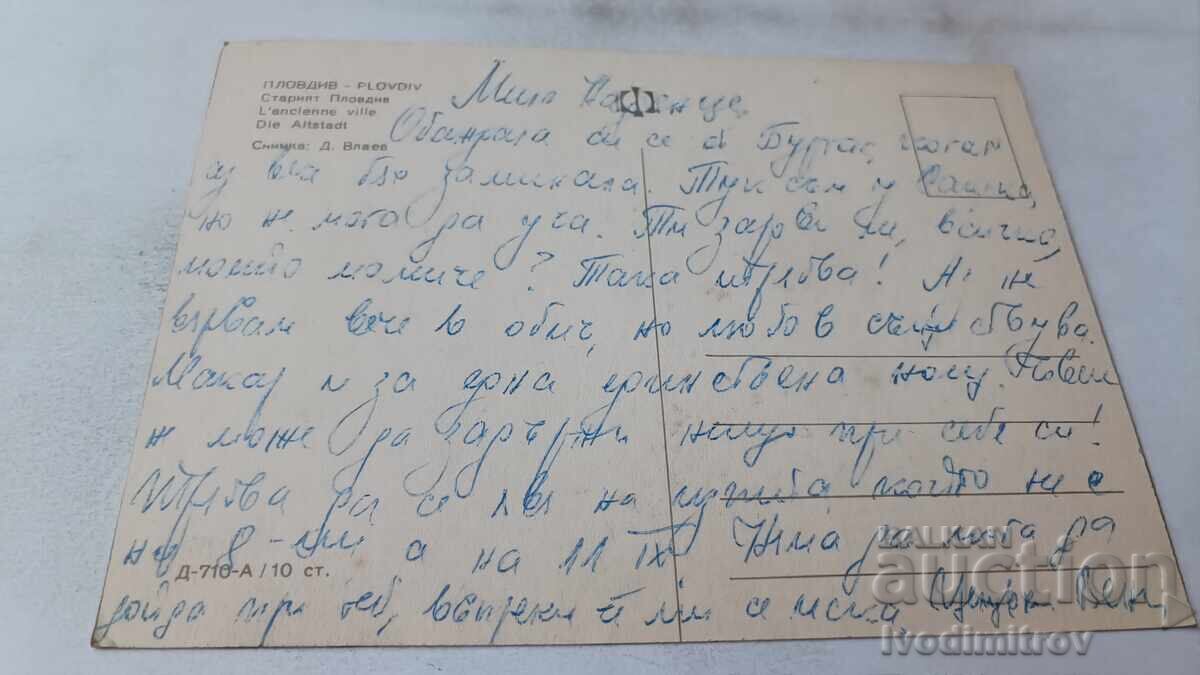 ПЛОВДИВ - PLOVDIV
Старият Пловдив
L'ancienne ville
Die Altstadt
Снимка: Д. Влаев
Мил
Обажда си се в Бургас, когат
аз бях заминала. Тук съм у
но не мога да уча. Ти заряза ли, всичко,
мойто момиче? Така трябва! Аз не
вярвам вече в обич, но любов съществува.
Макар и за една единствена нощ.
не може да задържи нищо при себе си!
Трябва да се на изпита, който не е
на 8-ми а на 11 IX Няма да мога да
дойда при теб, въпреки че ми се иска
Д-710-А / 10 ст.
BALKAN
auction
ivodimitrov